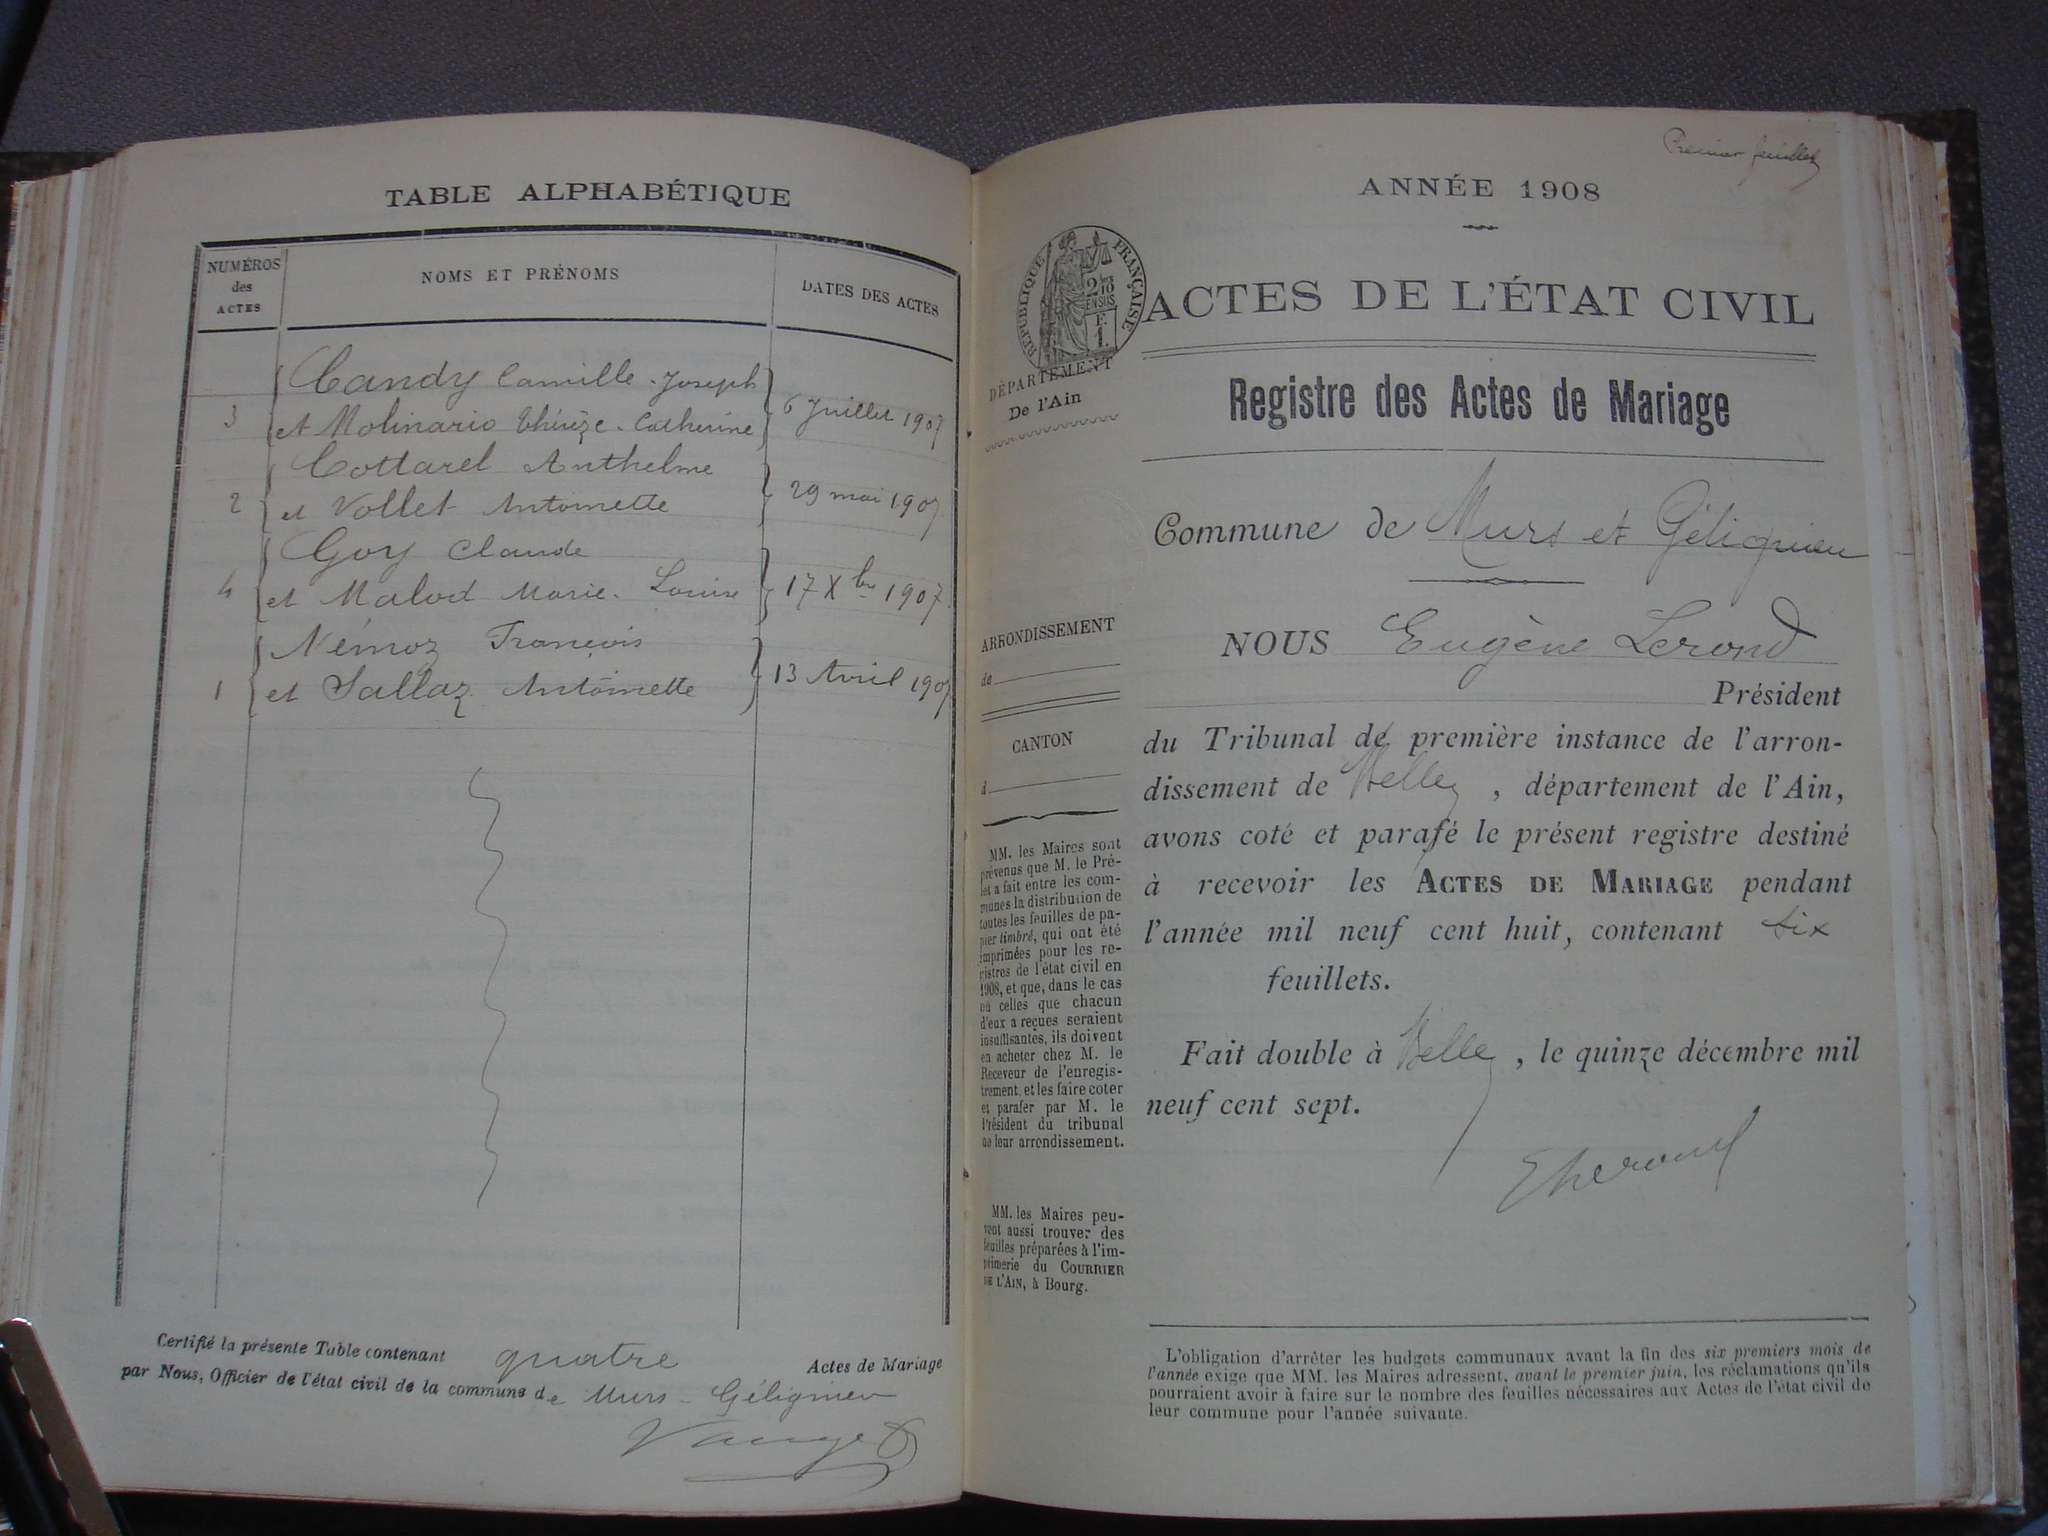 TABLE ALPHABÉTIQUE
NUMÉROS
des
ACTES
NOMS ET PRÉNOMS
DATES DES ACTES
Candy Camille-Joseph
3 et Molinario Thérèze-Catherine 6 Juillet 1907
Cottarel Anthelme
2 et Vollet Antoinette 29 mai 1907
Goy Claude
4 et Malod Marie-Louise 17 Xbre 1907
Némoz François
1 et Sallaz Antoinette 13 Avril 1907
Certifié la présente Table contenant quatre Actes de Mariage
par Nous, Officier de l'état civil de la commune de Murs-Gélignieu
Premier feuillet
ANNÉE 1908
RÉPUBLIQUE FRANÇAISE
2/10
EN SUS
F.
1.
DÉPARTEMENT
De l'Ain
ACTES DE L'ÉTAT CIVIL
Registre des Actes de Mariage
Commune de Murs et Gélignieu
ARRONDISSEMENT
de
CANTON
d
MM. les Maires sont
prévenus que M. le Pré-
fet a fait entre les com-
munes la distribution de
toutes les feuilles de pa-
pier timbré, qui ont été
imprimées pour les re-
gistres de l'état civil en
1908, et que, dans le cas
où celles que chacun
d'eux a reçues seraient
insuffisantes, ils doivent
en acheter chez M. le
Receveur de l'enregis-
trement, et les faire coter
et parafer par M. le
Président du tribunal
de leur arrondissement.
MM. les Maires peu-
vent aussi trouver des
feuilles préparées à l'im-
primerie du COURRIER
DE L'AIN, à Bourg.
NOUS Eugène Lerond
Président
du Tribunal de première instance de l'arron-
dissement de Belley, département de l'Ain,
avons coté et parafé le présent registre destiné
à recevoir les ACTES DE MARIAGE pendant
l'année mil neuf cent huit, contenant six
feuillets.
Fait double à Belley, le quinze décembre mil
neuf cent sept.
L'obligation d'arrêter les budgets communaux avant la fin des six premiers mois de
l'année exige que MM. les Maires adressent, avant le premier juin, les réclamations qu'ils
pourraient avoir à faire sur le nombre des feuilles nécessaires aux Actes de l'état civil de
leur commune pour l'année suivante.